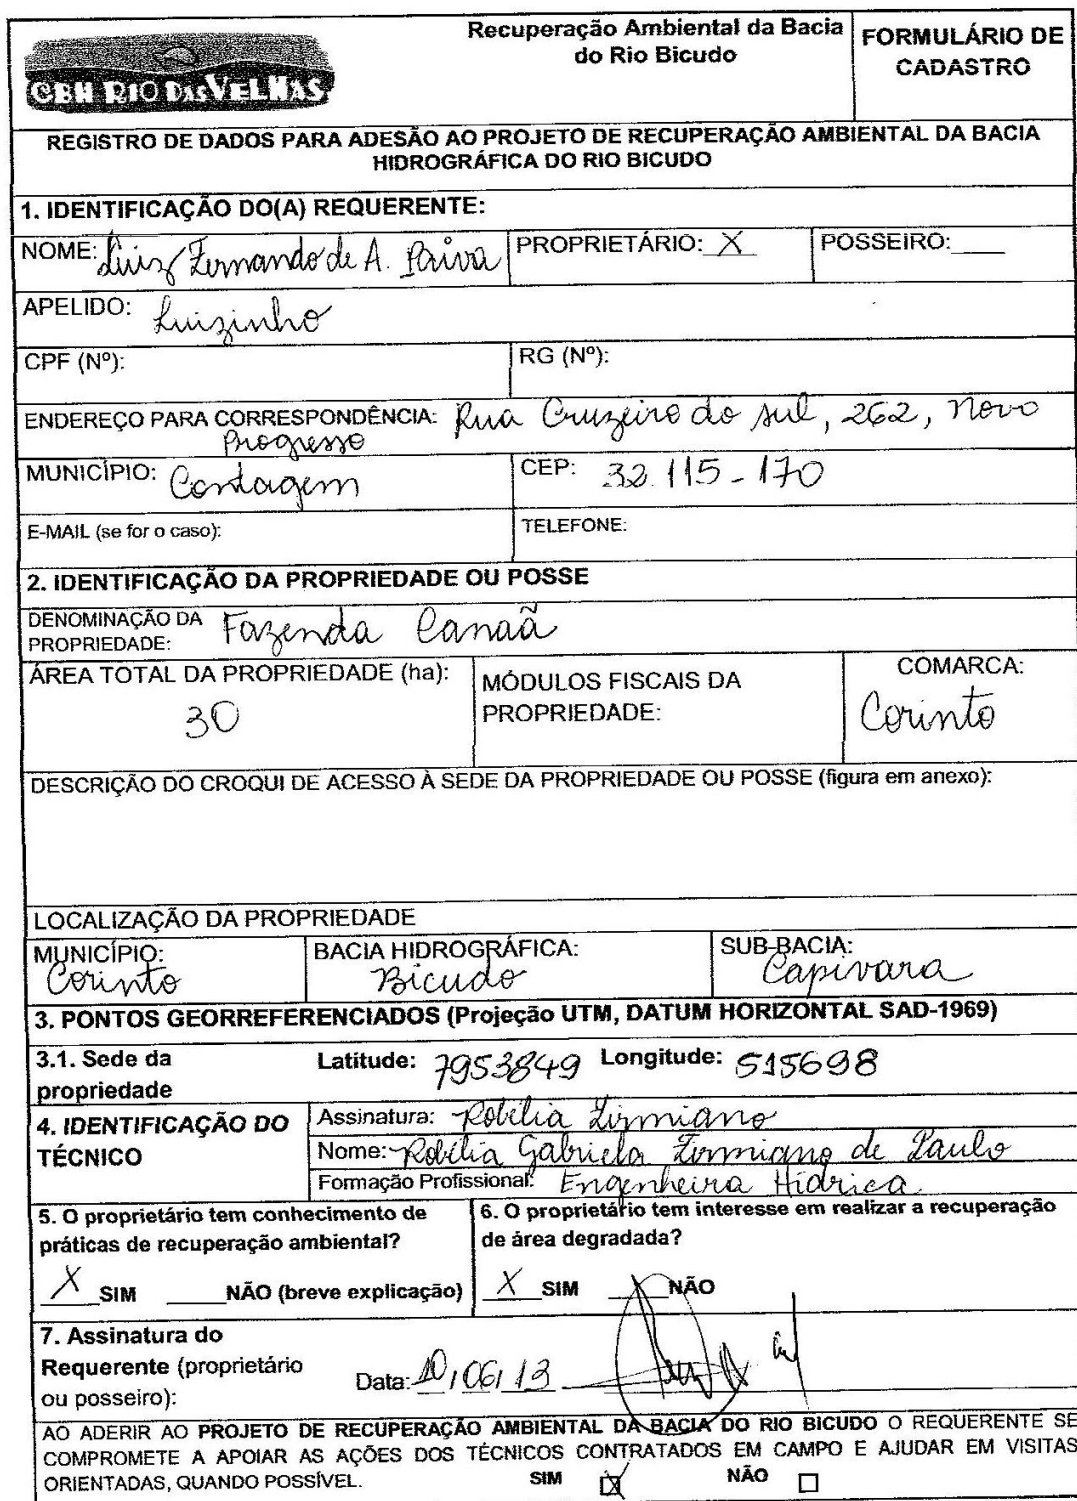 CBH RIO DAS VELHAS
Recuperação Ambiental da Bacia
do Rio Bicudo
FORMULÁRIO DE
CADASTRO
REGISTRO DE DADOS PARA ADESÃO AO PROJETO DE RECUPERAÇÃO AMBIENTAL DA BACIA
HIDROGRÁFICA DO RIO BICUDO
1. IDENTIFICAÇÃO DO(A) REQUERENTE:
NOME: Luiz Fernando de A. Paiva PROPRIETÁRIO: X POSSEIRO:____
APELIDO: Luizinho
CPF (Nº): RG (Nº):
ENDEREÇO PARA CORRESPONDÊNCIA: Rua Cruzeiro do sul, 262, Novo
Progresso
MUNICÍPIO: Contagem CEP: 32.115-170
E-MAIL (se for o caso): TELEFONE:
2. IDENTIFICAÇÃO DA PROPRIEDADE OU POSSE
DENOMINAÇÃO DA
PROPRIEDADE: Fazenda Canaã
ÁREA TOTAL DA PROPRIEDADE (ha):
30
MÓDULOS FISCAIS DA
PROPRIEDADE:
COMARCA:
Corinto
DESCRIÇÃO DO CROQUI DE ACESSO À SEDE DA PROPRIEDADE OU POSSE (figura em anexo):
LOCALIZAÇÃO DA PROPRIEDADE
MUNICÍPIO:
Corinto
BACIA HIDROGRÁFICA:
Bicudo
SUB-BACIA:
Capivara
3. PONTOS GEORREFERENCIADOS (Projeção UTM, DATUM HORIZONTAL SAD-1969)
3.1. Sede da
propriedade
Latitude: 7953849 Longitude: 515698
4. IDENTIFICAÇÃO DO
TÉCNICO
Assinatura: Robélia Firmiano
Nome: Robélia Gabriela Firmiano de Paulo
Formação Profissional: Engenheira Hídrica
5. O proprietário tem conhecimento de
práticas de recuperação ambiental?
X SIM ____NÃO (breve explicação)
6. O proprietário tem interesse em realizar a recuperação
de área degradada?
X SIM ____NÃO
7. Assinatura do
Requerente (proprietário
ou posseiro):
Data: 10/06/13
AO ADERIR AO PROJETO DE RECUPERAÇÃO AMBIENTAL DA BACIA DO RIO BICUDO O REQUERENTE SE
COMPROMETE A APOIAR AS AÇÕES DOS TÉCNICOS CONTRATADOS EM CAMPO E AJUDAR EM VISITAS
ORIENTADAS, QUANDO POSSÍVEL. SIM ☒ NÃO ☐